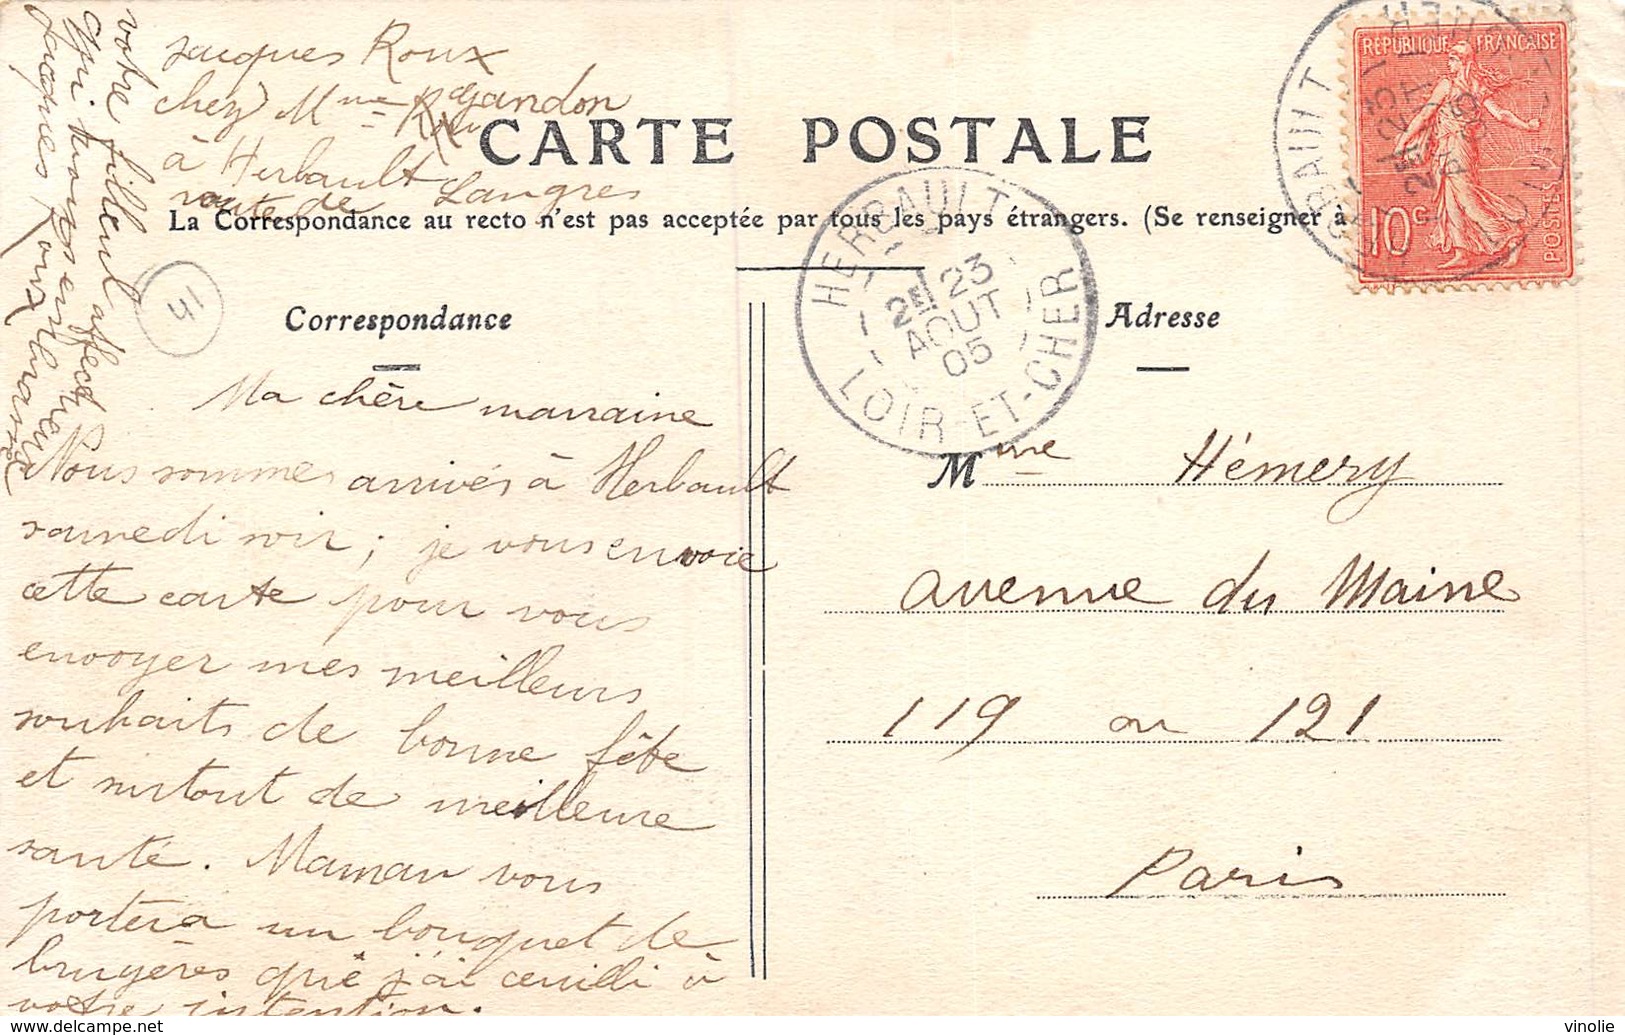 Jacques Roux
chez Mme Gandon
à Herbault
route de Langres
CARTE POSTALE
La Correspondance au recto n'est pas acceptée par tous les pays étrangers. (Se renseigner à
REPUBLIQUE FRANÇAISE
10 c
POSTES
HERBAULT
2E 23
AOUT
05
LOIR-ET-CHER
41
Correspondance
Ma chère marraine
Nous sommes arrivés à Herbault
samedi soir ; je vous envoie
cette carte pour vous
envoyer mes meilleurs
souhaits de bonne fête
et surtout de meilleure
santé. Maman vous
portera un bouquet de
bruyères que j'ai cueilli à
votre intention.
votre filleul affectueux
qui vous embrasse
Jacques Roux
Adresse
Mme Hémery
avenue du Maine
119 ou 121
Paris
delcampe.net
vinolie